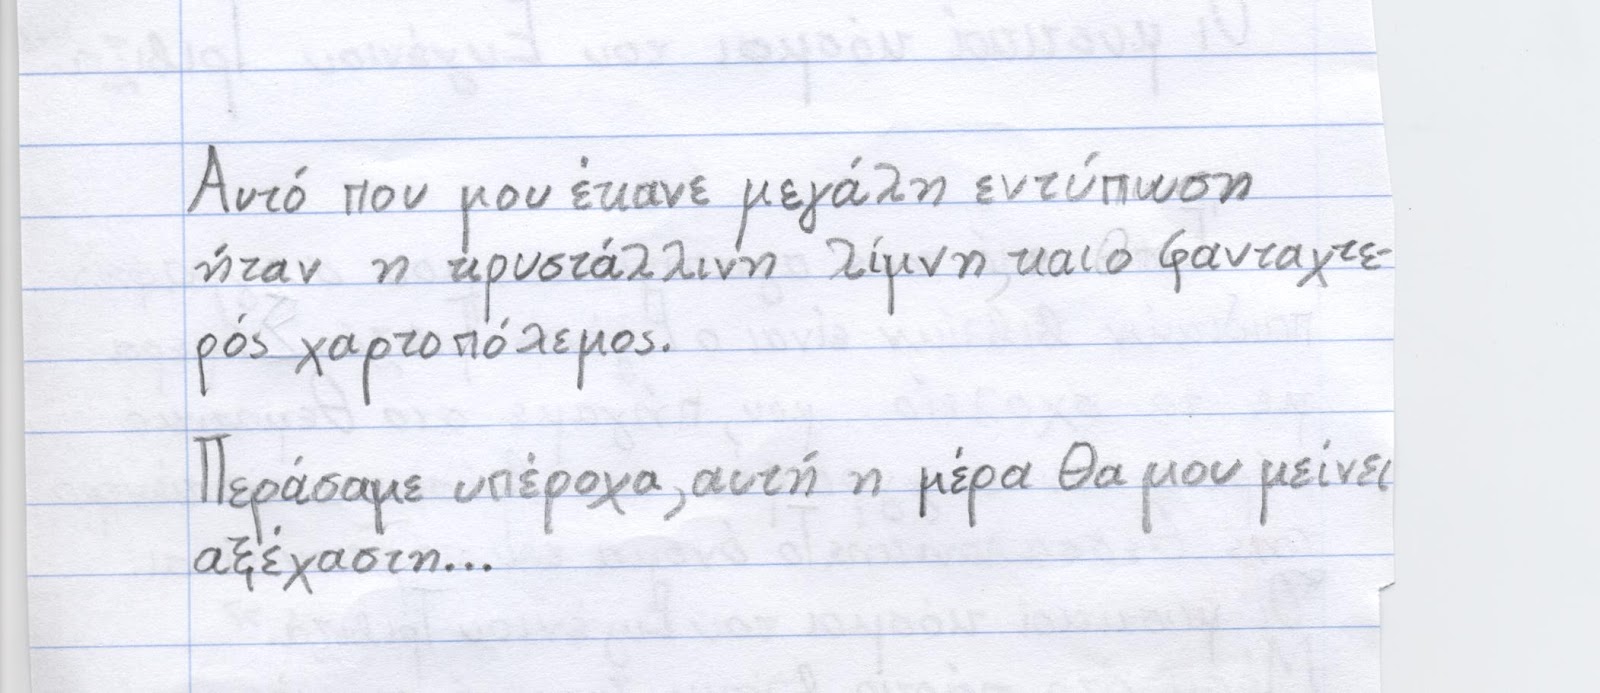 Αυτό που μου έκανε μεγάλη εντύπωση
ήταν η κρυστάλλινη λίμνη και ο φανταχτε-
ρός χαρτοπόλεμος.
Περάσαμε υπέροχα, αυτή η μέρα θα μου μείνει
αξέχαστη...